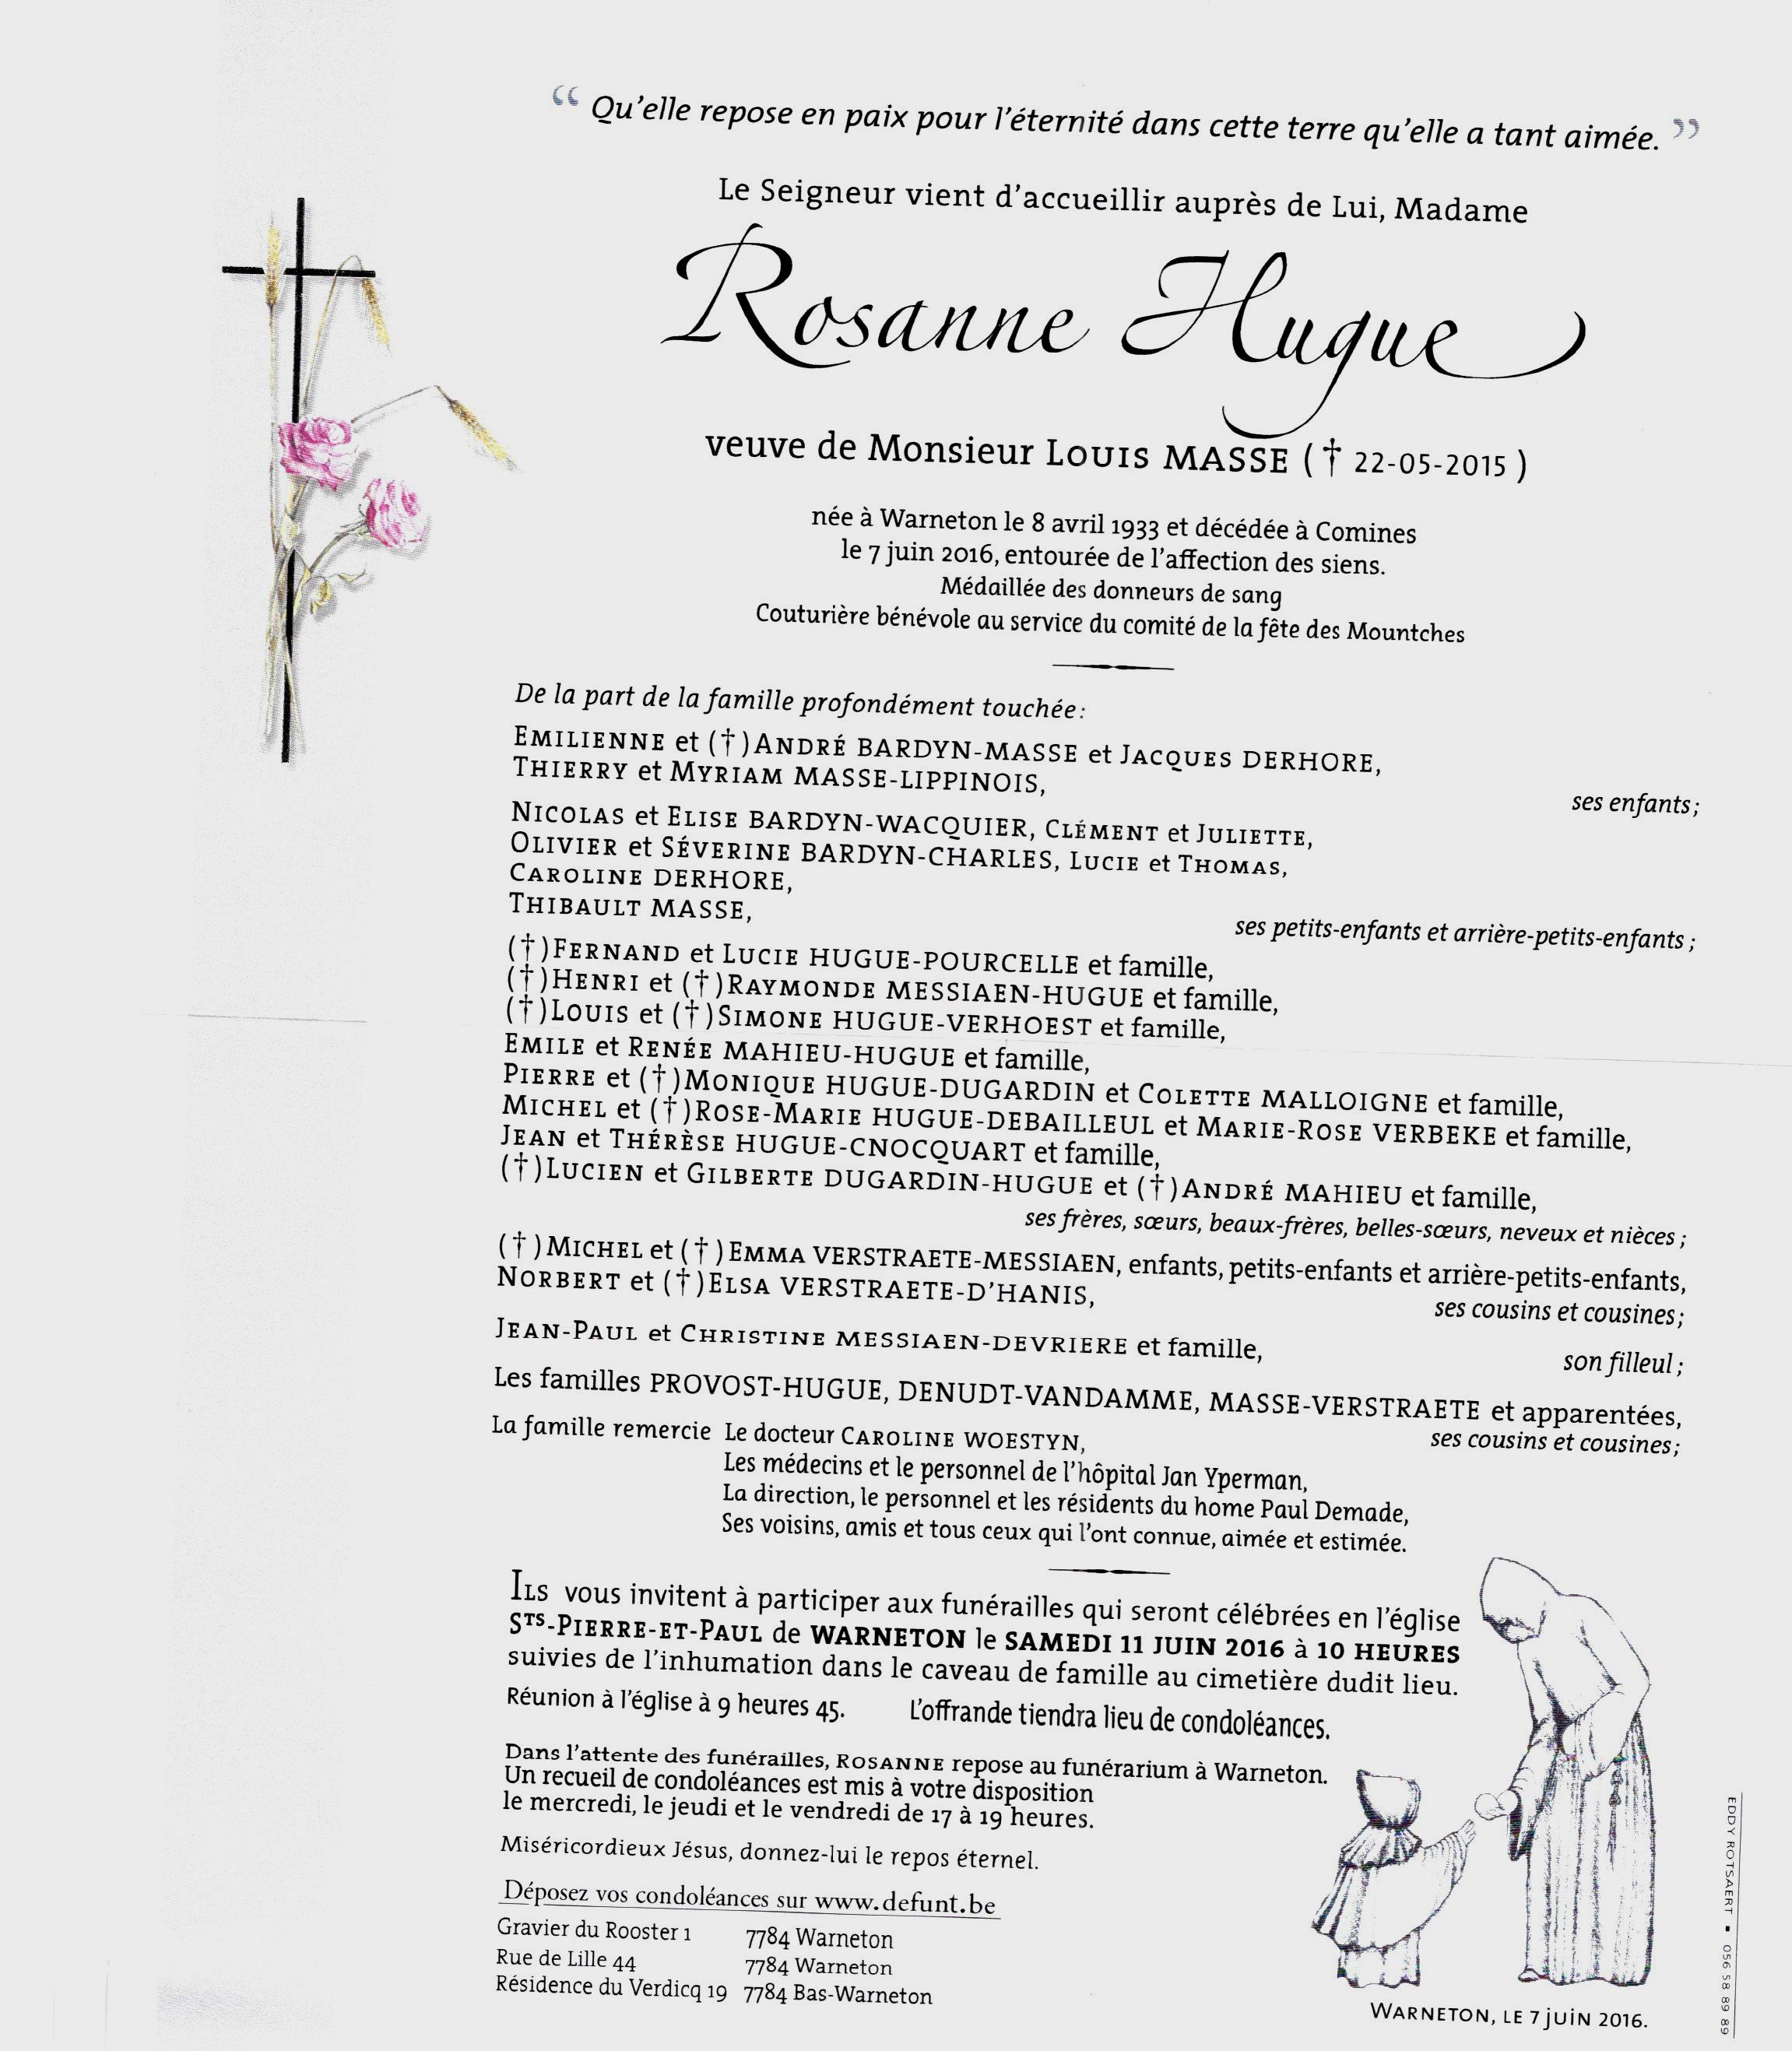 “ Qu’elle repose en paix pour l’éternité dans cette terre qu’elle a tant aimée. ”
Le Seigneur vient d’accueillir auprès de Lui, Madame
Rosanne Hugue
veuve de Monsieur LOUIS MASSE ( † 22-05-2015 )
née à Warneton le 8 avril 1933 et décédée à Comines
le 7 juin 2016, entourée de l’affection des siens.
Médaillée des donneurs de sang
Couturière bénévole au service du comité de la fête des Mountches
De la part de la famille profondément touchée :
EMILIENNE et ( † ) ANDRÉ BARDYN-MASSE et JACQUES DERHORE,
THIERRY et MYRIAM MASSE-LIPPINOIS,
ses enfants ;
NICOLAS et ELISE BARDYN-WACQUIER, CLÉMENT et JULIETTE,
OLIVIER et SÉVERINE BARDYN-CHARLES, LUCIE et THOMAS,
CAROLINE DERHORE,
THIBAULT MASSE,
ses petits-enfants et arrière-petits-enfants ;
( † ) FERNAND et LUCIE HUGUE-POURCELLE et famille,
( † ) HENRI et ( † ) RAYMONDE MESSIAEN-HUGUE et famille,
( † ) LOUIS et ( † ) SIMONE HUGUE-VERHOEST et famille,
EMILE et RENÉE MAHIEU-HUGUE et famille,
PIERRE et ( † ) MONIQUE HUGUE-DUGARDIN et COLETTE MALLOIGNE et famille,
MICHEL et ( † ) ROSE-MARIE HUGUE-DEBAILLEUL et MARIE-ROSE VERBEKE et famille,
JEAN et THÉRÈSE HUGUE-CNOCQUART et famille,
( † ) LUCIEN et GILBERTE DUGARDIN-HUGUE et ( † ) ANDRÉ MAHIEU et famille,
ses frères, sœurs, beaux-frères, belles-sœurs, neveux et nièces ;
( † ) MICHEL et ( † ) EMMA VERSTRAETE-MESSIAEN, enfants, petits-enfants et arrière-petits-enfants,
NORBERT et ( † ) ELSA VERSTRAETE-D’HANIS,
ses cousins et cousines ;
JEAN-PAUL et CHRISTINE MESSIAEN-DEVRIERE et famille,
son filleul ;
Les familles PROVOST-HUGUE, DENUDT-VANDAMME, MASSE-VERSTRAETE et apparentées,
ses cousins et cousines ;
La famille remercie Le docteur CAROLINE WOESTYN,
Les médecins et le personnel de l’hôpital Jan Yperman,
La direction, le personnel et les résidents du home Paul Demade,
Ses voisins, amis et tous ceux qui l’ont connue, aimée et estimée.
ILS vous invitent à participer aux funérailles qui seront célébrées en l’église
STS-PIERRE-ET-PAUL de WARNETON le SAMEDI 11 JUIN 2016 à 10 HEURES
suivies de l’inhumation dans le caveau de famille au cimetière dudit lieu.
Réunion à l’église à 9 heures 45. L’offrande tiendra lieu de condoléances.
Dans l’attente des funérailles, ROSANNE repose au funérarium à Warneton.
Un recueil de condoléances est mis à votre disposition
le mercredi, le jeudi et le vendredi de 17 à 19 heures.
Miséricordieux Jésus, donnez-lui le repos éternel.
Déposez vos condoléances sur www.defunt.be
Gravier du Rooster 1 7784 Warneton
Rue de Lille 44 7784 Warneton
Résidence du Verdicq 19 7784 Bas-Warneton
WARNETON, LE 7 juin 2016.
EDDY ROTSAERT ▪ 056 58 89 89